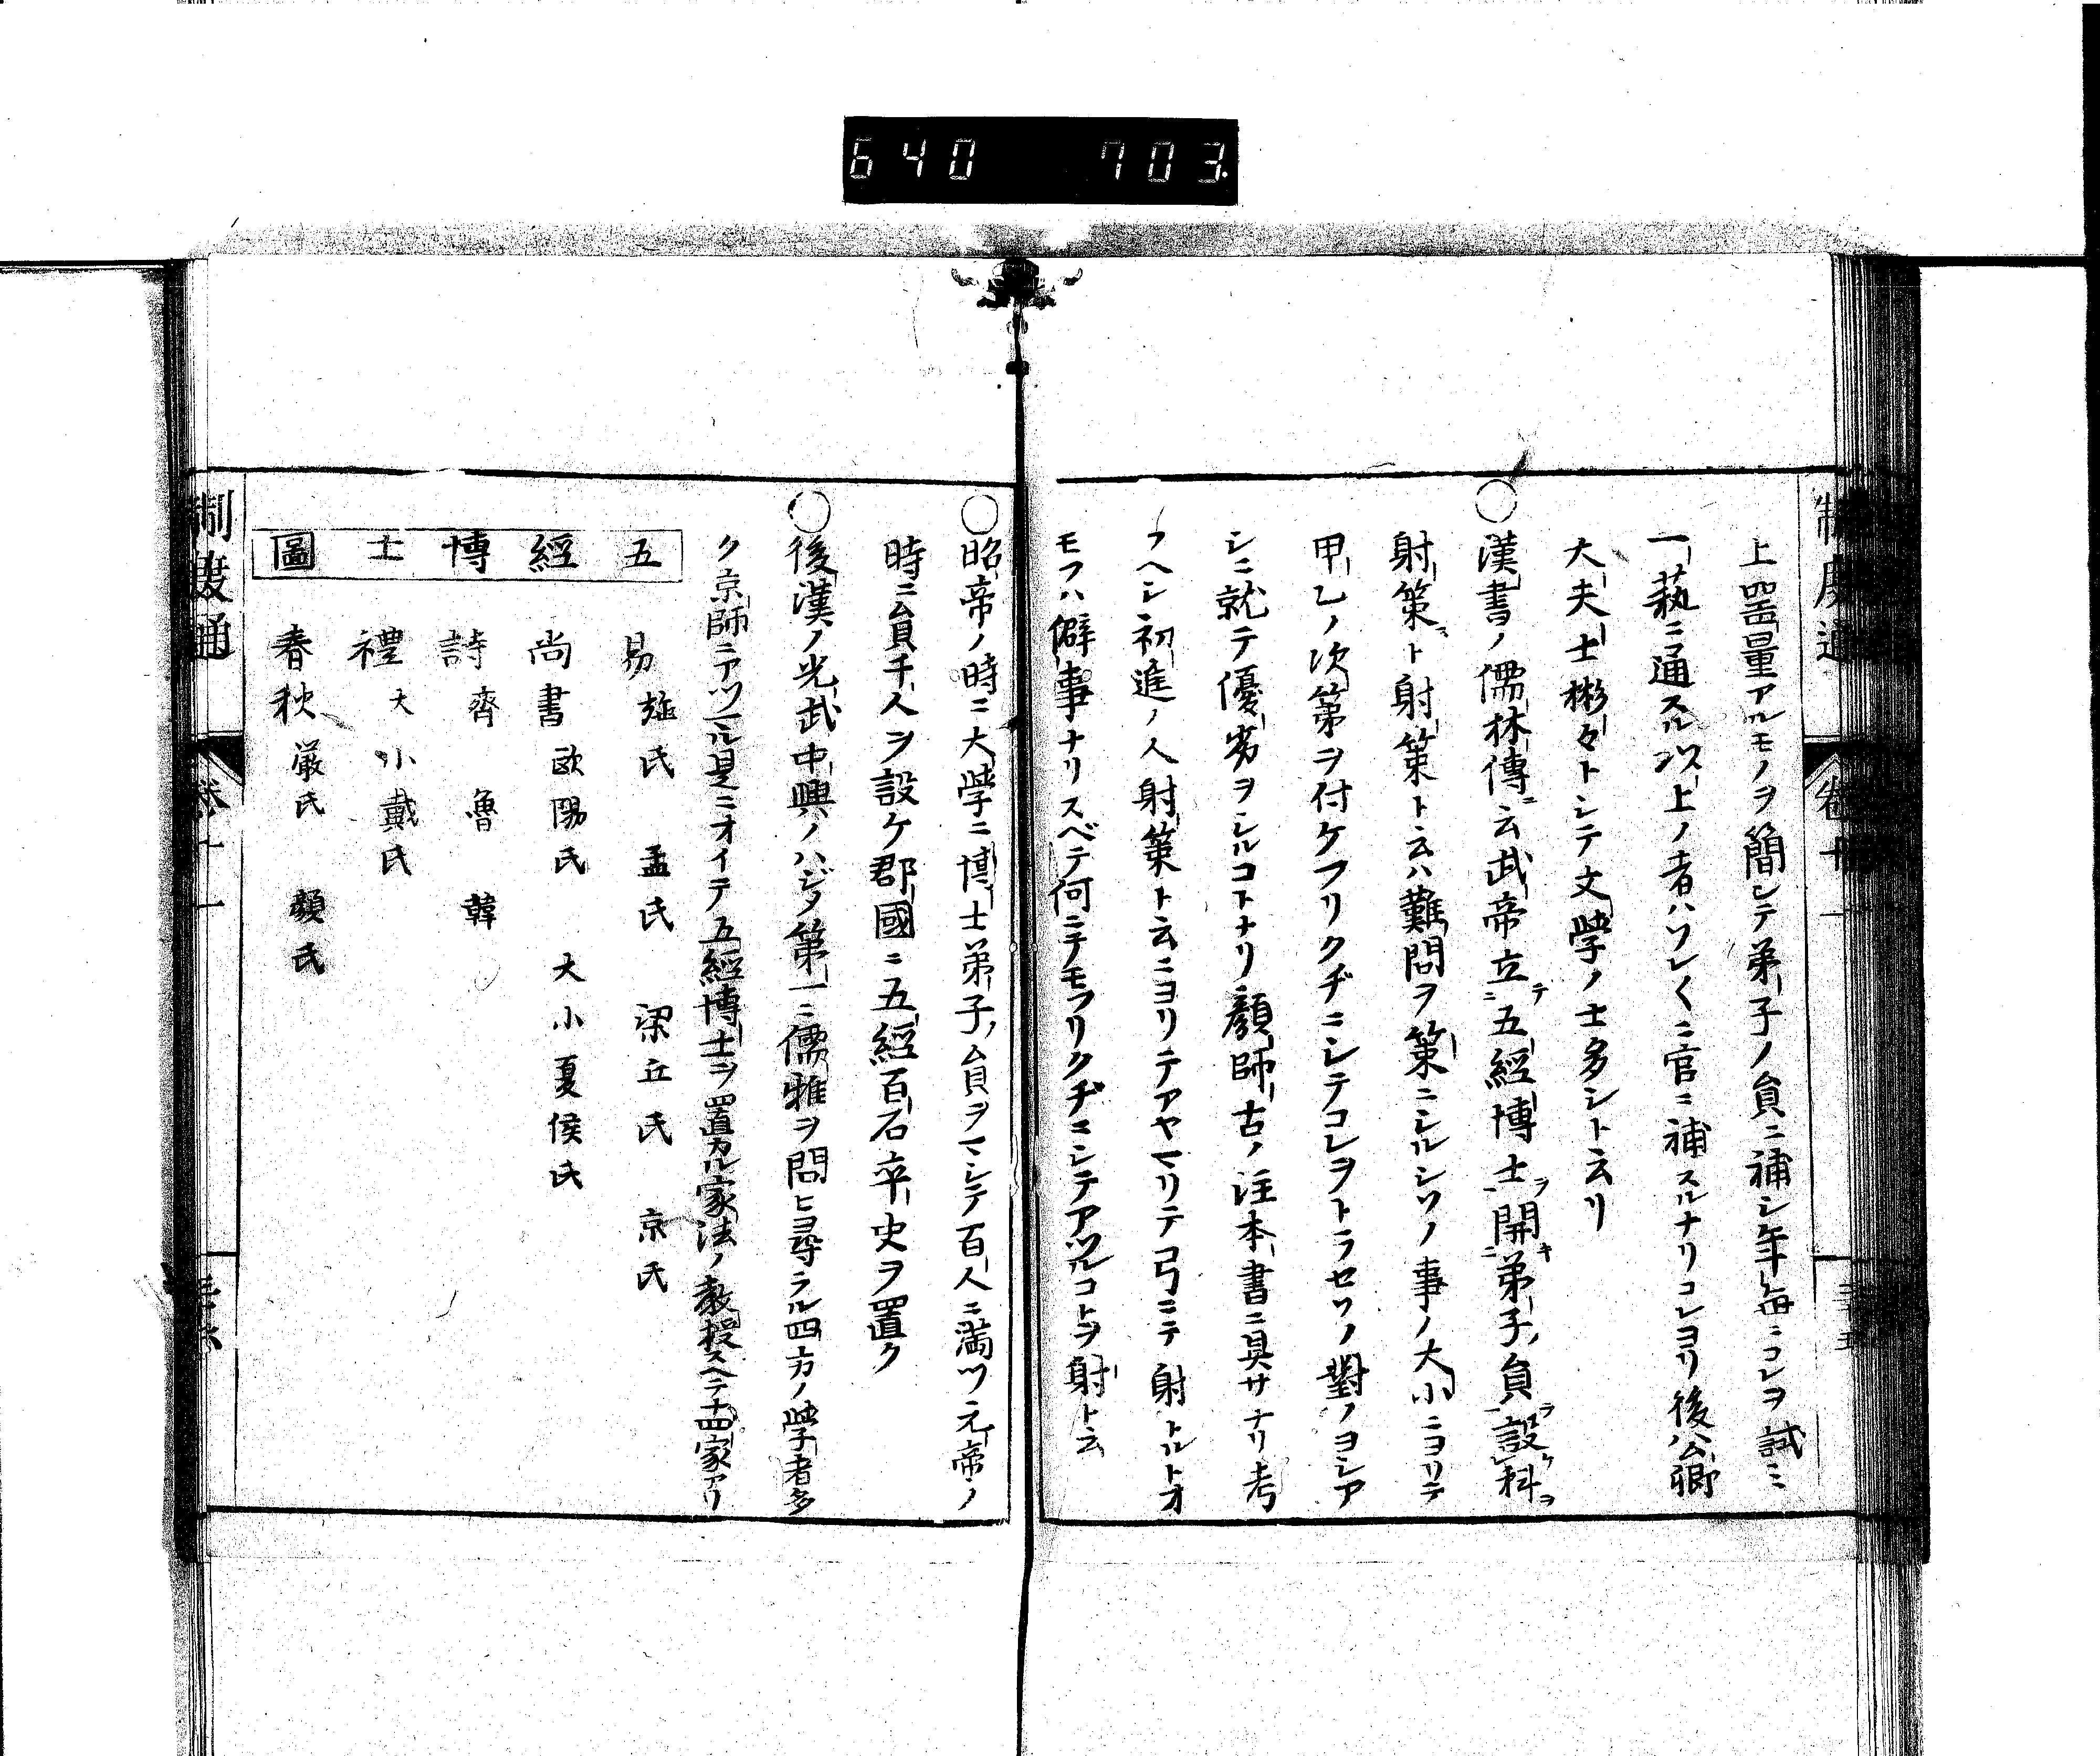 640 703.
制度通 卷十一
上器量アルモノヲ簡シテ弟子ノ負ニ補シ年毎ニコレヲ試ミ
一藝ニ通スル以上ノ者ハソレ〱ニ官ニ補スルナリコレヨリ後公卿
大夫士彬々トシテ文學ノ士多シト云リ
○漢書ノ儒林傳ニ云武帝立テ五經博士ヲ開キ弟子負ヲ設ケ科ヲ
射策ヲト射策ト云ハ難問ヲ策ニシルシソノ事ノ大小ニヨリテ
甲乙ノ次第ヲ付ケフリクヂニシテコレヲトラセソノ對ノヨシア
シニ就テ優劣ヲシルコトナリ顔師古ノ注本書ニ具サナリ考
フヘシ初進ノ人射策ト云ニヨリテアヤマリテ弓ニテ射トルトオ
モフハ僻事ナリスベテ何ニテモフリクヂニシテアツルコトヲ射ト云
○昭帝ノ時ニ大學ニ博士弟子ノ負ヲマシテ百人ニ満ツ元帝ノ
時ニ負千人ヲ設ケ郡國ニ五經百石卒史ヲ置ク
○後漢ノ光武中興ノハジメ第一ニ儒雅ヲ問ヒ尋ラル四方ノ學者多
ク京師ニアツマル是ニオイテ五經博士ヲ置カル家法ノ教授スヘテ十四家アリ
五經博士圖
易 施氏 孟氏 梁丘氏 京氏
尚書 欧陽氏 大小夏侯氏
詩 齊 魯 韓
禮 大小戴氏
春秋 嚴氏 顔氏
制度通 卷十一